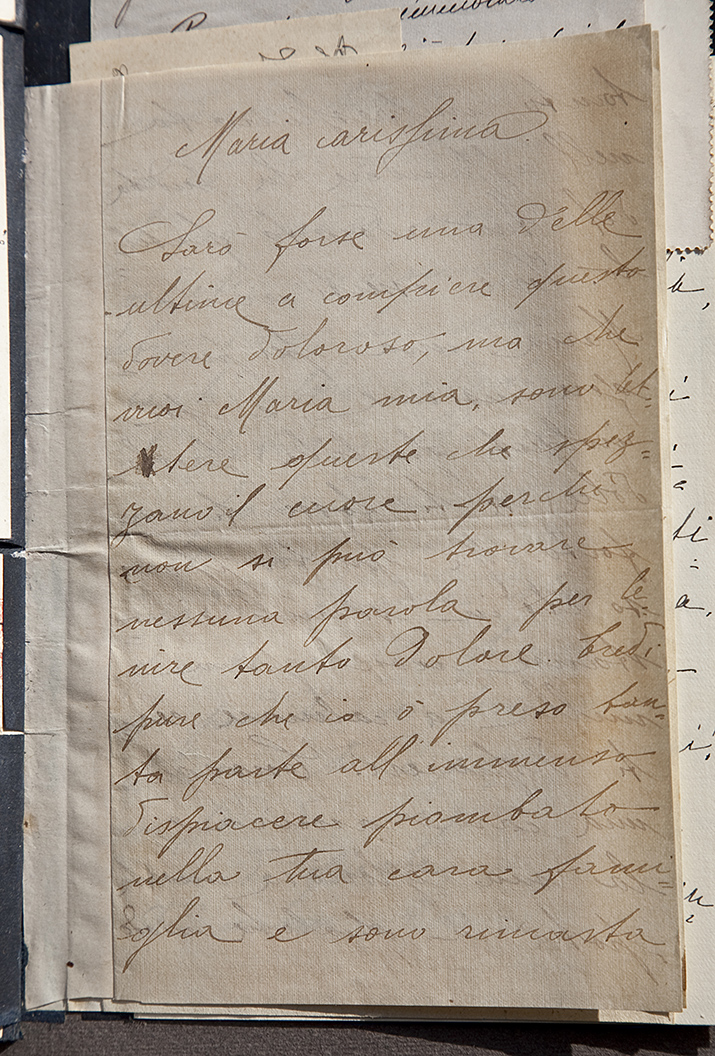 Maria carissima.
Sarò forse una delle
ultime a compiere questo
dovere doloroso, ma che
vuoi Maria mia, sono let-
tere queste che spez=
zano il cuore perché
non si può trovare
nessuna parola per le-
nire tanto dolore. Credi
pure che io ò preso tan-
ta parte all'immenso
dispiacere piombato
nella tua cara fami-
glia e sono rimasta